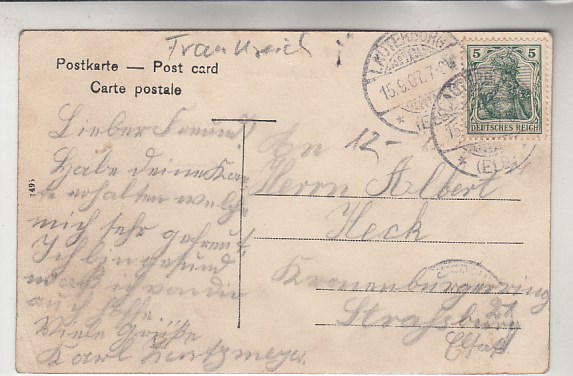 Frankreich
Postkarte — Post card
Carte postale
LAUTERBURG
15.6.07. 7-8V
(ELS
5 5
DEUTSCHES REICH
(ELS
12-
Lieber Freund!
Habe deine Kar-
te erhalten welche
mich sehr gefreut.
Ich bin gesund
was ich von dir
auch hoffe
Viele Grüße
Karl
An
Herrn Albert
Heck
Kronenburgerring
21
Straßburg
Elsaß